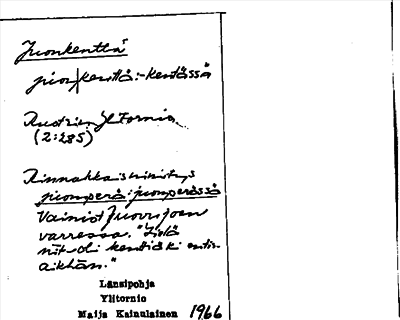 Juonkenttä
juon/kenttä : -kentässä
Ruotsi, Yl Tornio
(2:285)
Rinnakkaisnimitys
juomperä : juomperässä
Vainiot Juovvijoen
varressa. "Sielä
niit oli kenttiäki entis-
aikhän."
Länsipohja
Ylitornio
Maija Kainulainen 1966